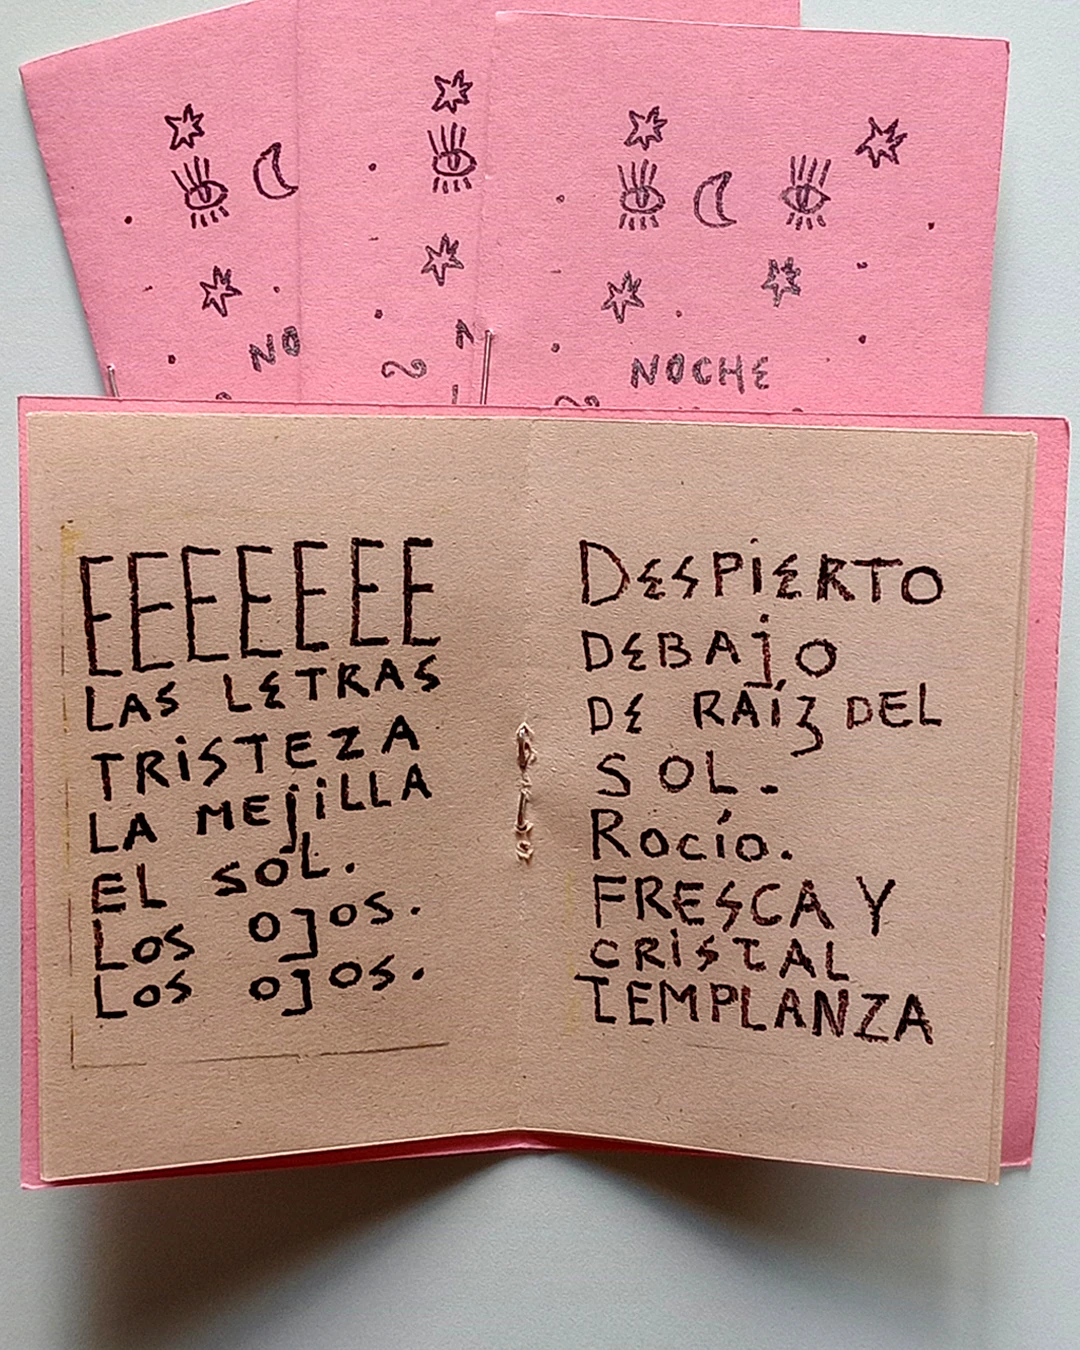 NO
N
NOCHE
EEEEEEE
LAS LETRAS
TRiSTEZA
LA MEjiLLA
EL SOL.
Los OJOS.
Los OJOS.
DESPiERTO
DEBAjO
DE RAíz DEL
SOL.
Rocío.
FRESCA Y
CRiSTAL
TEMPLANZA